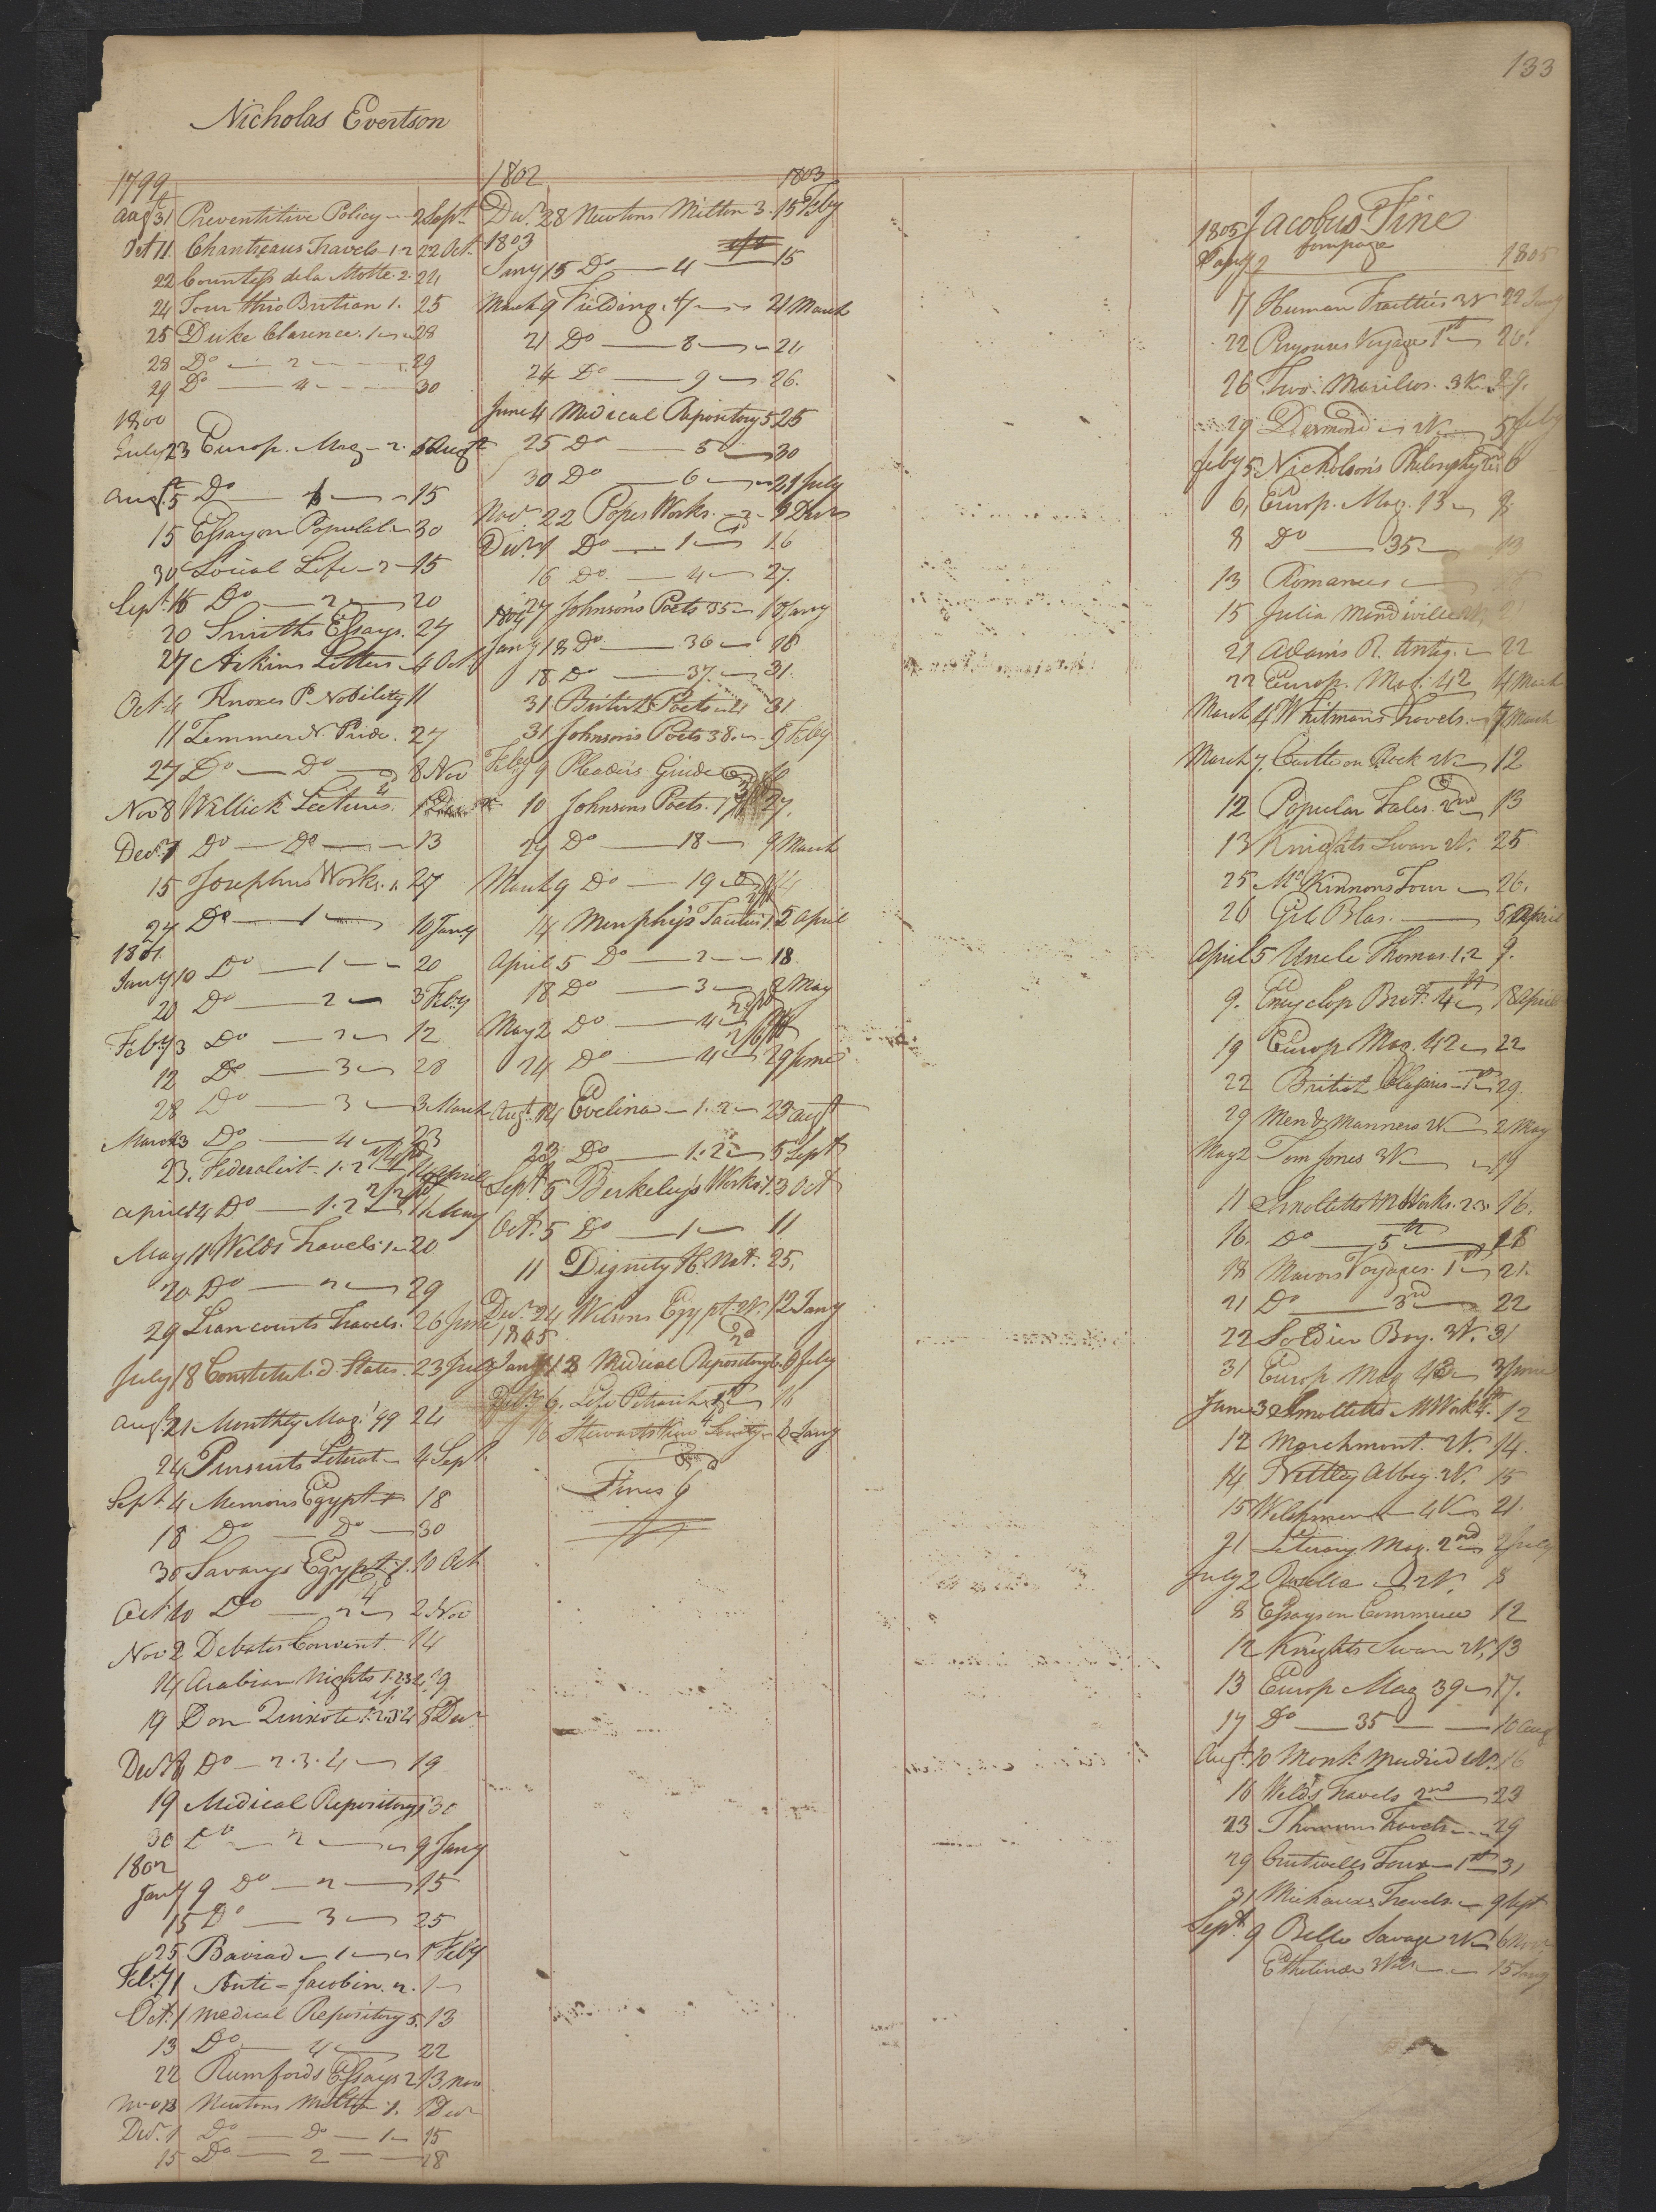 133
Nicholas Evertson
1799
Augt 31 Preventitive Policy - 2 Sept
Oct 11 Chantreaus Travels 1.2 22 Oct
22 Countess de la Motte. 2. 24
24 Tour thro Britian 1. 25
25 Duke Clarence. 1 28
28 Do 2 29
29 Do 4 30
1800
July 23 Europ. Mag - 2. 5 Augt
Augt. 5 Do 15
15 Essay on Populat. 30
30 Social Life - 2 - 15
Sept. 15 Do 2 20
20 Smiths Essays. 27
27 Aikins Letters 4 Oct
Oct 4 Knoxes P. Nobility 11
11 Zimmer N. Pride. 27
27 Do Do 8 Nov
Nov 8 Willich Lectures. 1
Decr. 1 Do Do 13
15 Josephus Works. 1. 27
27 Do 1 10 Jany
1801
Jany 10 Do 1 20
20 Do 2 3 Feby
Feby 3 Do 2 12
12 Do 3 28
28 Do 3 3 March
March 3 Do 4 23
23. Federalist. 1.2 14 April
April 14 Do 1.2 11 May
May 11 Welds Travels 1 20
20 Do 2 29
29 Liancourts Travels. 26 June
July 18 Constitut. d. States. 23 July
Augt 21 Monthly Mag. '99 24
24 Pursuits Literat - 4 Sept.
Sept 4 Memoirs Egypt 18
18 Do Do 30
30 Savarys Egypt 1. 10 Oct
Oct 10 Do 2 2 Nov
Nov 2 Debates Convent. 14
14 Arabian Nights 1.2.3.4. 19
19 Don Quixote 1.2.3.4 8 Decr
Decr. 8 Do - 2.3.4 19
19 Medical Repository 1 30
30 Do 2 9 Jany
1802
Jany 9 Do 2 15
15 Do 3 25
25 Baviad 1 1 Feby
Feby 1 Anti-Jacobin. 2.
Oct. 1 Medical Repository 5. 13
13 Do 4 22
22 Rumfords Essays 2 13 Nov
Nov 13 Newtons Milton 1. 1 Decr
Decr. 1 Do Do 1 15
15 Do 2 28
1802 1803
Decr. 28 Newtons Milton 3. 15 Feby
1803
Jany 15 Do 4 15
March 9 Fielding. 7 21 March
21 Do 8 24
24 Do 9 26.
June 4 Medical Repository 5 25
25 Do 5 30
30 Do 6 21 July
Novr. 22 Popes Works. 2 9 Decr
Decr. 9 Do 1 16
16 Do. 4 27.
27 Johnsons Poets 35 18 Jany
1804
Jany 18 Do 36 18
18 Do 37. 31.
31 British Poets 31
31 Johnson's Poets 38. 9 Feby
Feby 9 Pleader's Guide 10
10 Johnsons Poets. 17 27.
27 Do 18 9 March
March 9 Do 19 14
14 Murphy's Tacitus 1. 5 April
April 5 Do 2 18
18 Do 3 2 May
May 2 Do 4
24 Do 4 29 June
Augt. 14 Evelina 1.2 23 Augt
23 Do 1.2 5 Sept
Sept. 5 Berkeley's Works 1. 3 Oct
Oct. 5 Do 1 11
11 Dignity H. Nat. 25.
Decr. 24 Wilsons Egypt. W. 12 Jany
1805
Medical Repository 6.
6. Life Petrarch 16
16 Stewarts
Fines
Jacobus Fine
1805
1805
Jany 2
17 Human Frailties 3W 22 Jany
22 Voyage 1st 26.
26 Two. 3W 29.
29 Desmond W 5 Feby
Feby 5 Nicholson's Philosophy 6
6. Europ. Mag. 13 8
8 Do 35 13
13 Romances
15 Julia Mandiville W 21
21 Adams R. Antiq. 22
22 Europ. Mag. 42 4 March
March 4 Whitmans Travels. 7 March
March 7. Castle on Rock W 12
12 Popular Tales. 2nd 13
13 Knights Swan W. 25
25 McKinnons Tour 26.
26 Gil Blas. 5 April
April 5 Uncle Thomas 1.2 9.
9. Encyclop Brit. 4 18 April
19 Europ Mag. 42 22
22 British 1st 29.
29 Men & Manners W 2 May
May 2 Tom Jones 3W
11 Smolletts M Works. 2.3. 16.
16. Do 5th 18
18 Mavors Voyages. 1st 21.
21 Do 3rd 22
22 Soldier Boy. 3W. 31
31 Europ. Mag 43 3 June
June 3 Smolletts M Work 4. 12
12 Marchmont. W. 14.
14 Nettley Abbey. W. 15
15 4W 21.
21 Literary Mag. 2nd 2 July
July 2 W. 8
8 Essays on Commerce 12
12 Knights Swan W. 13
13 Europ Mag 39 17.
17 Do 35 10 Aug
Augt. 10 Monk Madrid W. 16
16 Welds Travels 2nd 23
23 Travels 29
29 Crutwells Tour 1st 31
31 Michauxs Travels. 9 Sept
Sept. 9 Belle Savage W 6 Nov
Ethelinde W 15 Jany